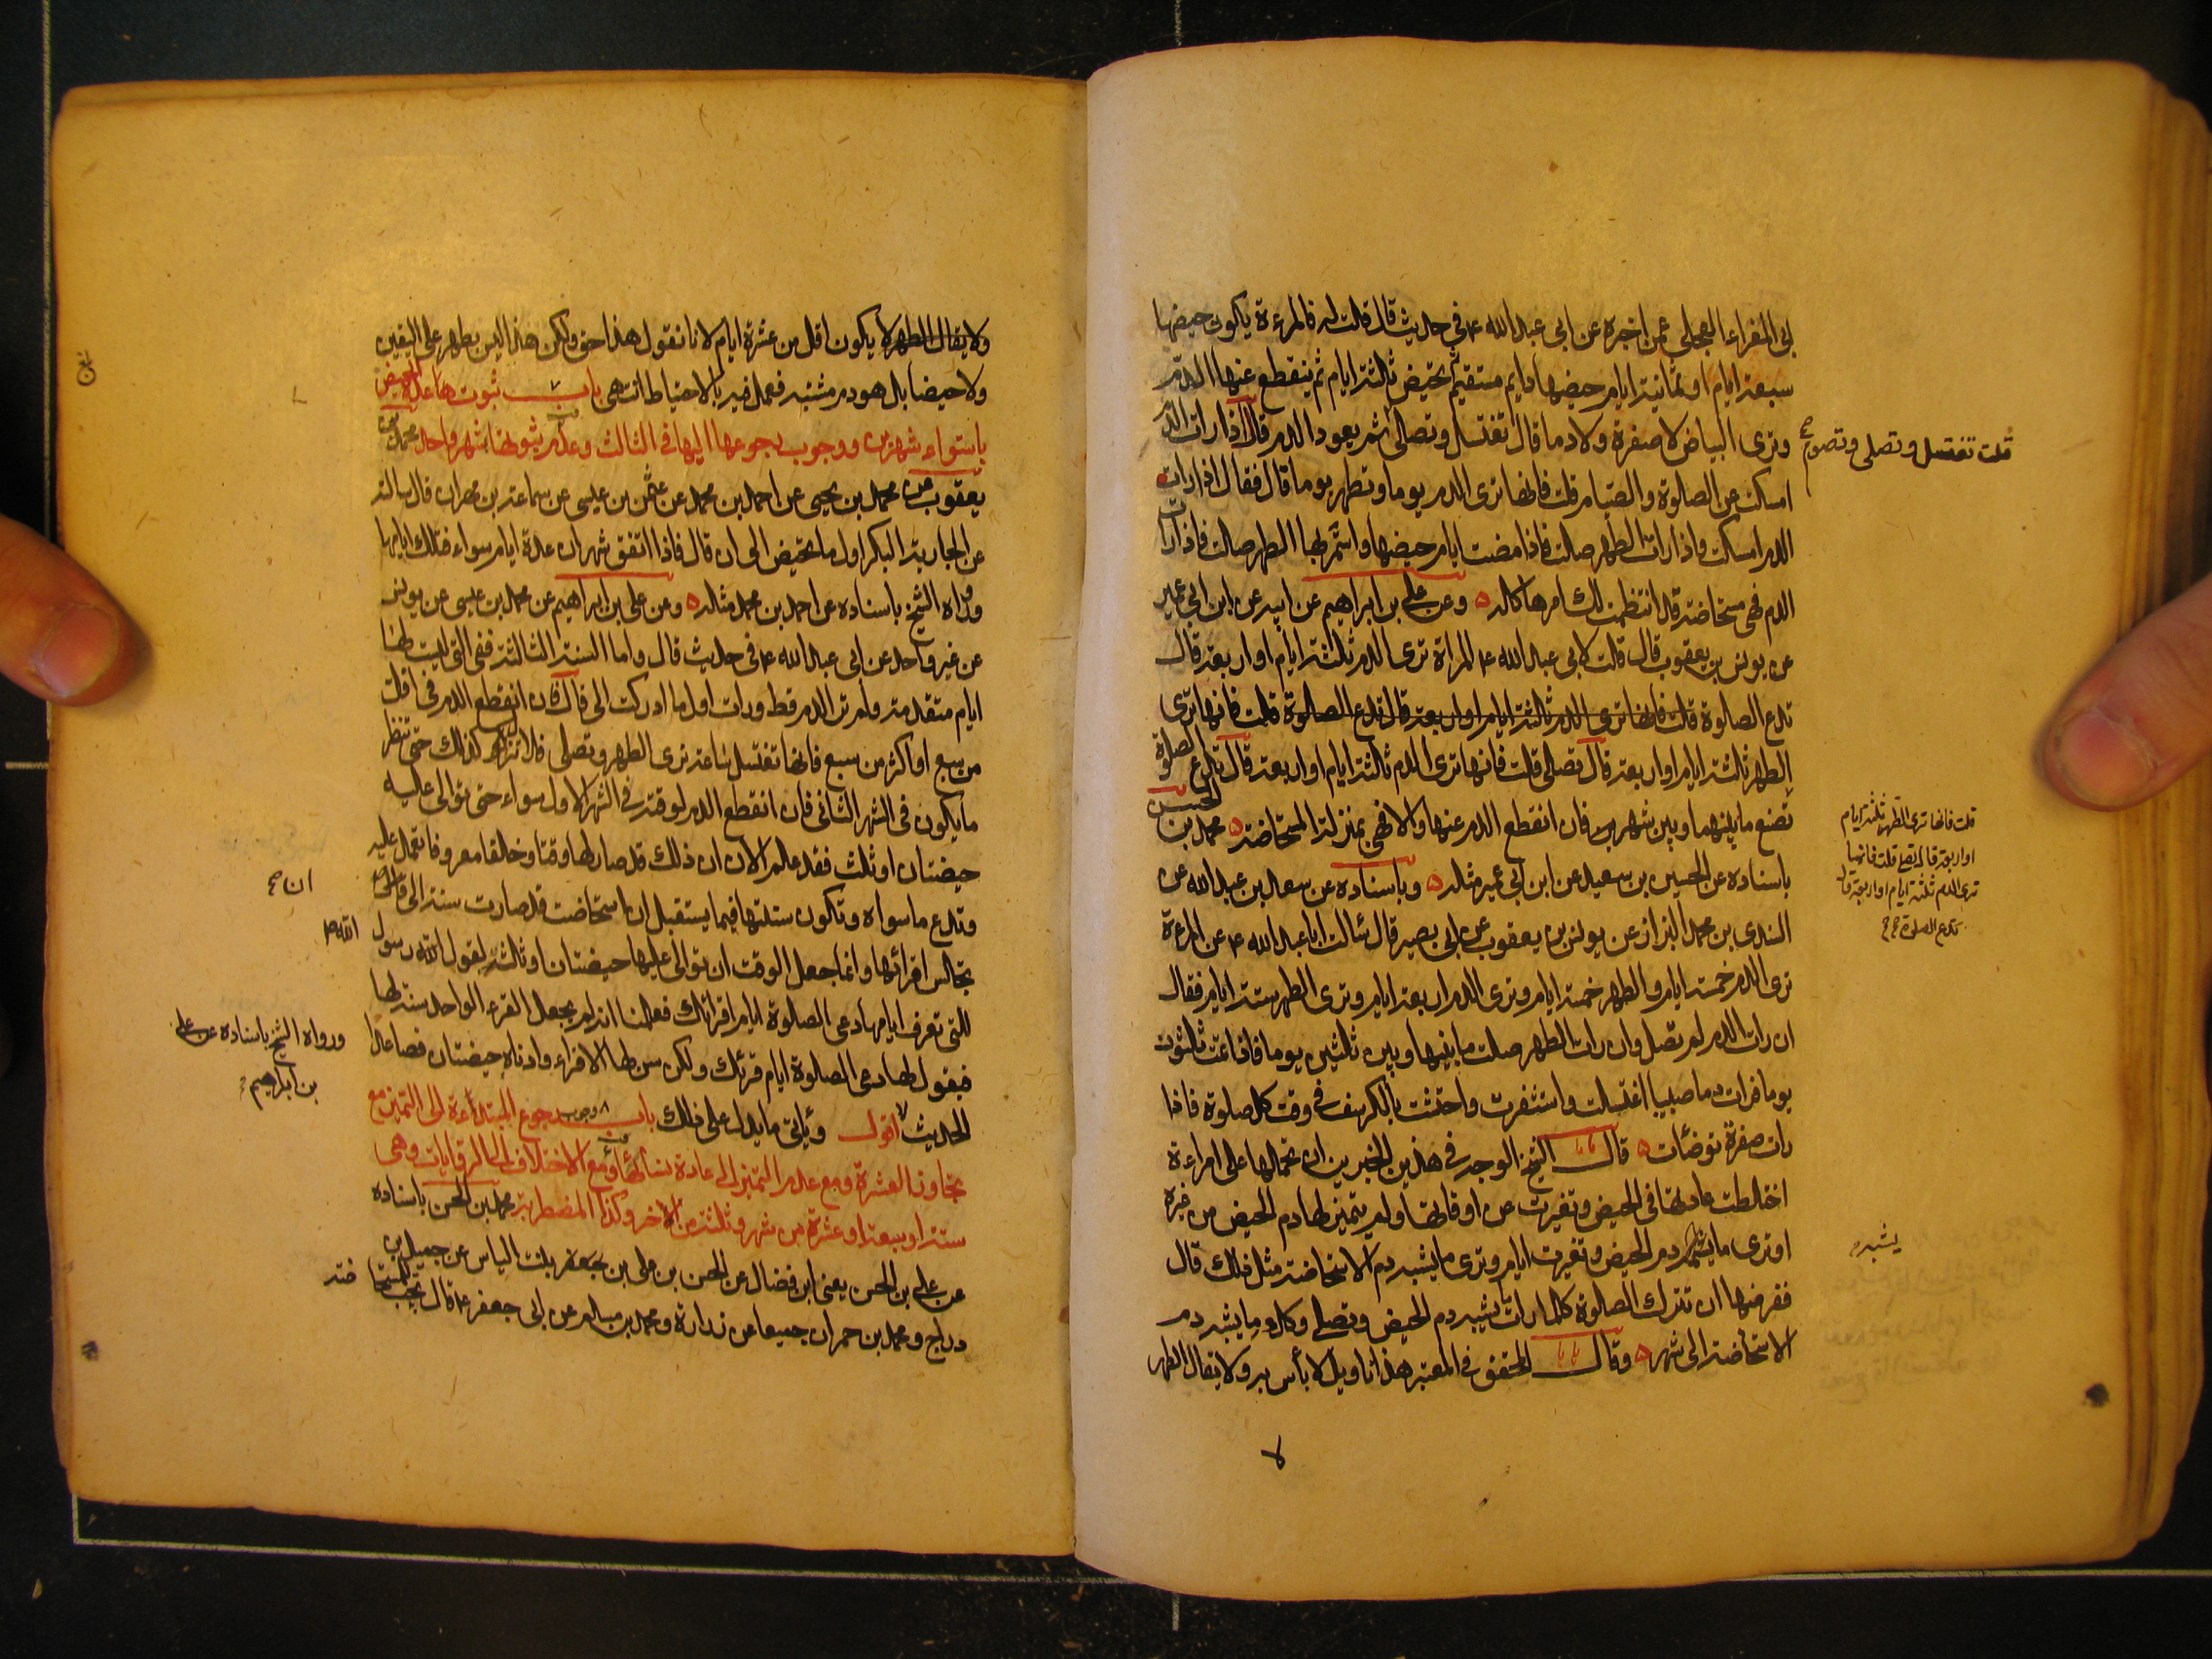 بى المغراء العجلى عمن اخبره عن ابى عبد الله ع فى حديث قال قلت له فالمرءة يكون حيضها
سبعة ايام او ثمانية ايام حيضها دايم مستقيم ثم تحيض ثلثة ايام ثم ينقطع عنها الدم
وترى البياض لا صفرة ولا دما قال تغتسل وتصلى ثم يعود الدم قال اذا رات الدم
قلت تغتسل وتصلى وتصوم
امسكت عن الصلوة والصيام قلت فانها ترى الدم يوما وتطهر يوما قال فقال اذا رات
الدم امسكت واذا رات الطهر صلت فاذا مضت ايام حيضها واستمر بها الطهر صلت فاذا رات
الدم فهى مستحاضة قد انتظمت لك امرها كله وعن على بن ابراهيم عن ابيه عن ابن ابى عمير
عن يونس بن يعقوب قال قلت لابى عبد الله ع المراة ترى الدم ثلثة ايام او اربعة قال
تدع الصلوة قلت فانها ترى الدم ثلثة ايام او اربعة قال تدع الصلوة قلت فانها ترى
الطهر ثلثة ايام او اربعة قال تصلى قلت فانها ترى الدم ثلثة ايام او اربعة قال تدع الصلوة
قلت فانها ترى الطهر ثلثة ايام
او اربعة قال تصلى قلت فانها
ترى الدم ثلثة ايام او اربعة قال
تدع الصلوة
تصنع ما بينها وبين شهر فان انقطع الدم عنها والا فهى بمنزلة المستحاضة محمد بن الحسن
باسناده عن الحسين بن سعيد عن ابن ابى عمير مثله وباسناده عن سعد بن عبد الله عن
السندى بن محمد البزاز عن يونس بن يعقوب عن ابى بصير قال سئالت ابا عبد الله ع عن المرءة
ترى الدم خمسة ايام والطهر خمسة ايام وترى الدم اربعة ايام وترى الطهر ستة ايام فقال
ان رات الدم لم تصل وان رات الطهر صلت ما بينها وبين ثلثين يوما فاذا تمت ثلثون
يوما فرات دما صبيبا اغتسلت واستثفرت واحتشت بالكرسف فى وقت كل صلوة فاذا
رات صفرة توضئات قال الشيخ الوجه فى هذين الخبرين ان نحملها على امراءة
اختلطت عادتها فى الحيض وتغيرت عن اوقاتها ولم يتميز لها دم الحيض من غيره
او ترى ما يشبه دم الحيض وتغيرت ايام وترى ما يشبه دم الاستحاضة مثل ذلك قال
يشبه
ففرضها ان تترك الصلوة كلما رات ما يشبه دم الحيض وتصلى كلما رات ما يشبه دم
الاستحاضة الى شهر وقال المحقق فى المعتبر هذا تاويل لا بأس به ولا يقال الطهر
لا
ولا يقال الطهر لا يكون اقل من عشرة ايام لانا نقول هذا حق ولكن هذا ليس بطهر على اليقين
ولا حيضا بل هو دم مشتبه فعمل فيه بالاحتياط انتهى باب ثبوت عادة الحيض
باستواء شهرين ووجوب رجوعها اليها فى الثالث وعدم ثبوتها بشهر واحد محمد بن
يعقوب عن محمد بن يحيى عن احمد بن محمد عن عثمن بن عيسى عن سماعة بن مهران قال سالته
عن الجارية البكر اول ما تحيض الى ان قال فاذا اتفق شهران عدة ايام سواء فتلك ايامها
ورواه الشيخ باسناده عن احمد بن محمد مثله وعن على بن ابراهيم عن محمد بن عيسى عن يونس
عن غير واحد عن ابى عبد الله ع فى حديث قال واما السنة الثالثة ففى التى ليست لها
ايام متقدمة ولم تر الدم قط ورات اول ما ادركت الى ان قال فان انقطع الدم فى اقل
من سبع او اكثر من سبع فانها تغتسل ساعة ترى الطهر وتصلى فلا تزال كذلك حتى تنظر
ما يكون فى الشهر الثانى فان انقطع الدم لوقته فى الشهر الاول سواء حتى توالى عليه
حيضتان او ثلث فقد علم الان ان ذلك قد صار لها وقتا وخلقا معروفا تعمل عليه
وتدع ما سواه وتكون سنتها فيما يستقبل ان استحاضت قد صارت سنة الى ان
ان
تجلس اقرائها وانما جعل الوقت ان توالى عليها حيضتان او ثلثة لقول رسول
الله ص
للتى تعرف ايامها دعى الصلوة ايام اقرائك فعلمنا انه لم يجعل القرء الواحد سنة لها
فيقول لها دعى الصلوة ايام قرئك ولكن سن لها الاقراء وادناه حيضتان فصاعدا
ورواه الشيخ باسناده عن على
بن ابراهيم
الحديث اقول وياتى ما يدل على ذلك باب وجوب رجوع المبتدأة الى التميز مع
تجاوز العشرة ومع عدم التميز الى عادة نسائها ومع الاختلاف الى الروايات وهى
ستة او سبعة او عشرة من شهر وثلثة من اخر وكذا المضطربة محمد بن الحسن باسناده
عن على بن الحسن يعنى ابن فضال عن الحسن بن على بن جعفر بنت الياس عن جميل بن
دراج ومحمد بن حمران جميعا عن زرارة ومحمد بن مسلم عن ابى جعفر ع قال يجب للمستحا
ضة